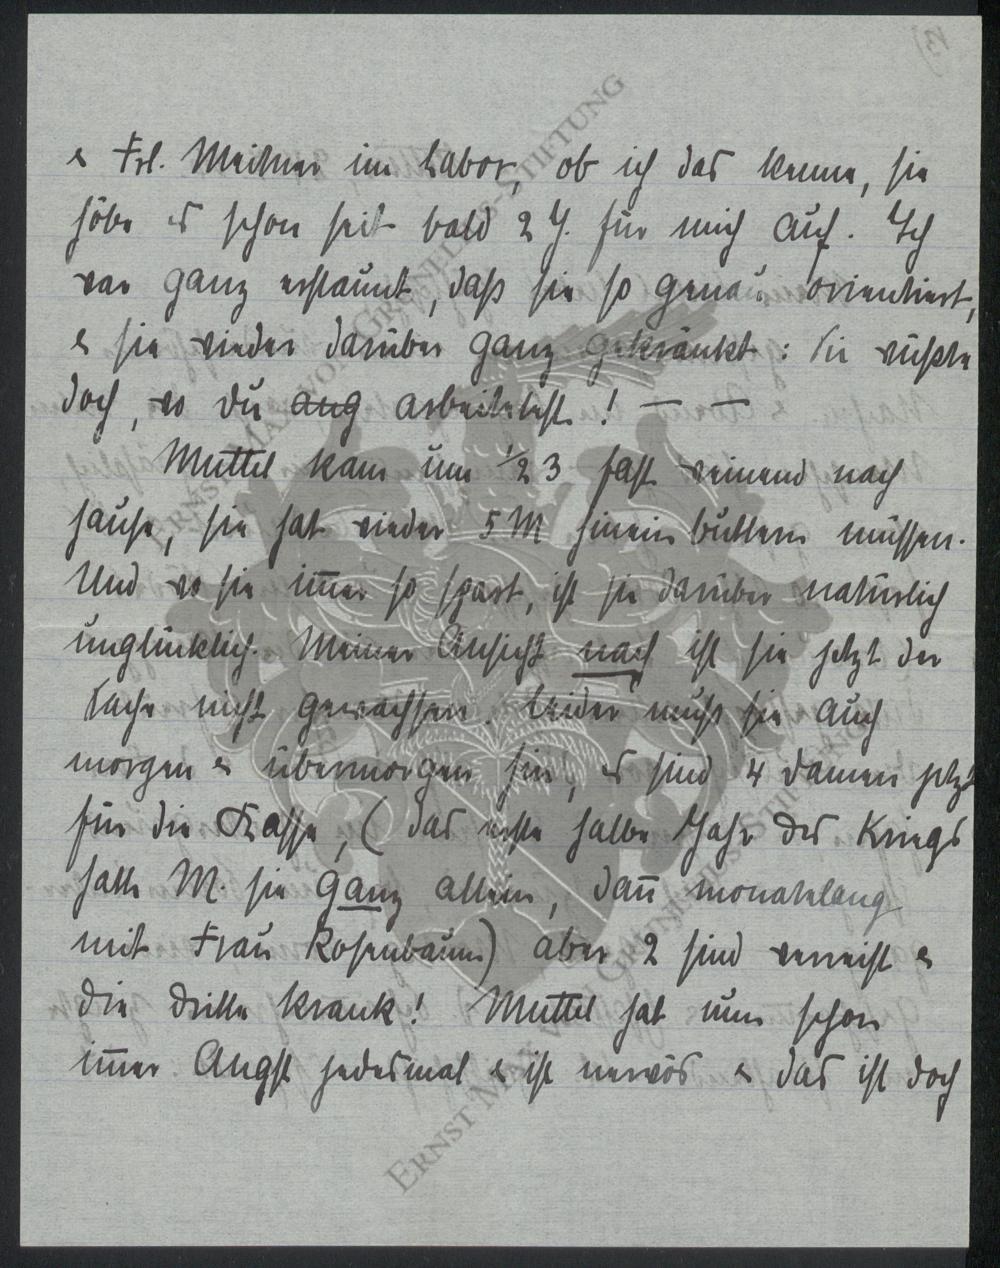 & Frl. Meitner im Labor, ob ich das kenne, sie
höbe es schon seit bald 2 J. für mich auf. Ich
war ganz erstaunt, daß sie so genau orientiert,
& sie wieder darüber ganz gekränkt: Sie wüßte
doch, wo Du aug arbeitetest! — —
Muttel kam um ½ 3 fast weinend nach
hause, sie hat wieder 5 M hineinbuttern müssen.
Und wo sie im̅er so spart, ist sie darüber natürlich
unglücklich. Meiner Ansicht nach ist sie jetzt der
Sache nicht gewachsen. Leider muß sie auch
morgen & übermorgen hin, es sind 4 Damen jetzt
für die Kasse, (das erste halbe Jahr des Kriegs
hatte M. sie ganz allein, dan̅ monatelang
mit Frau Rosenbaum) aber 2 sind verreist &
die dritte krank! Muttel hat nun schon
im̅er Angst jedesmal & ist nervös & das ist doch
ERNST MAX VON GRUNELIUS-STIFTUNG
ERNST MAX VON GRUNELIUS-STIFTUNG